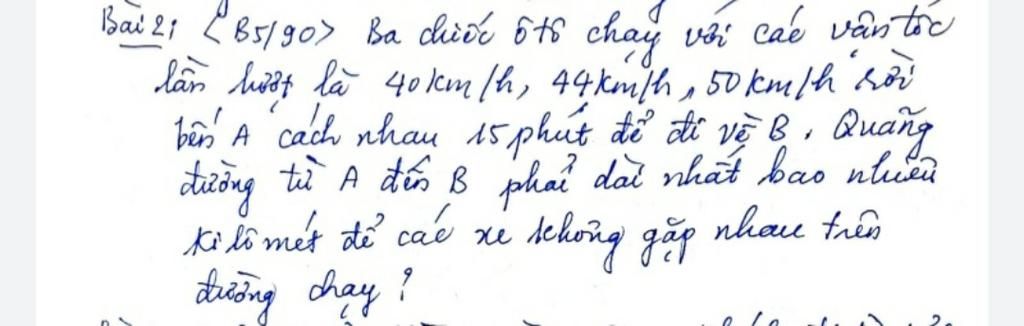 Bài 2; <B5/90> Ba chiếc ôtô chạy với các vân tốc
lần lượt là 40km/h, 44km/h, 50km/h rời
bến A cách nhau 15 phút để đi về B. Quãng
đường từ A đến B phải dài nhất bao nhiêu
ki lô mét để các xe không gặp nhau trên
đường chạy?